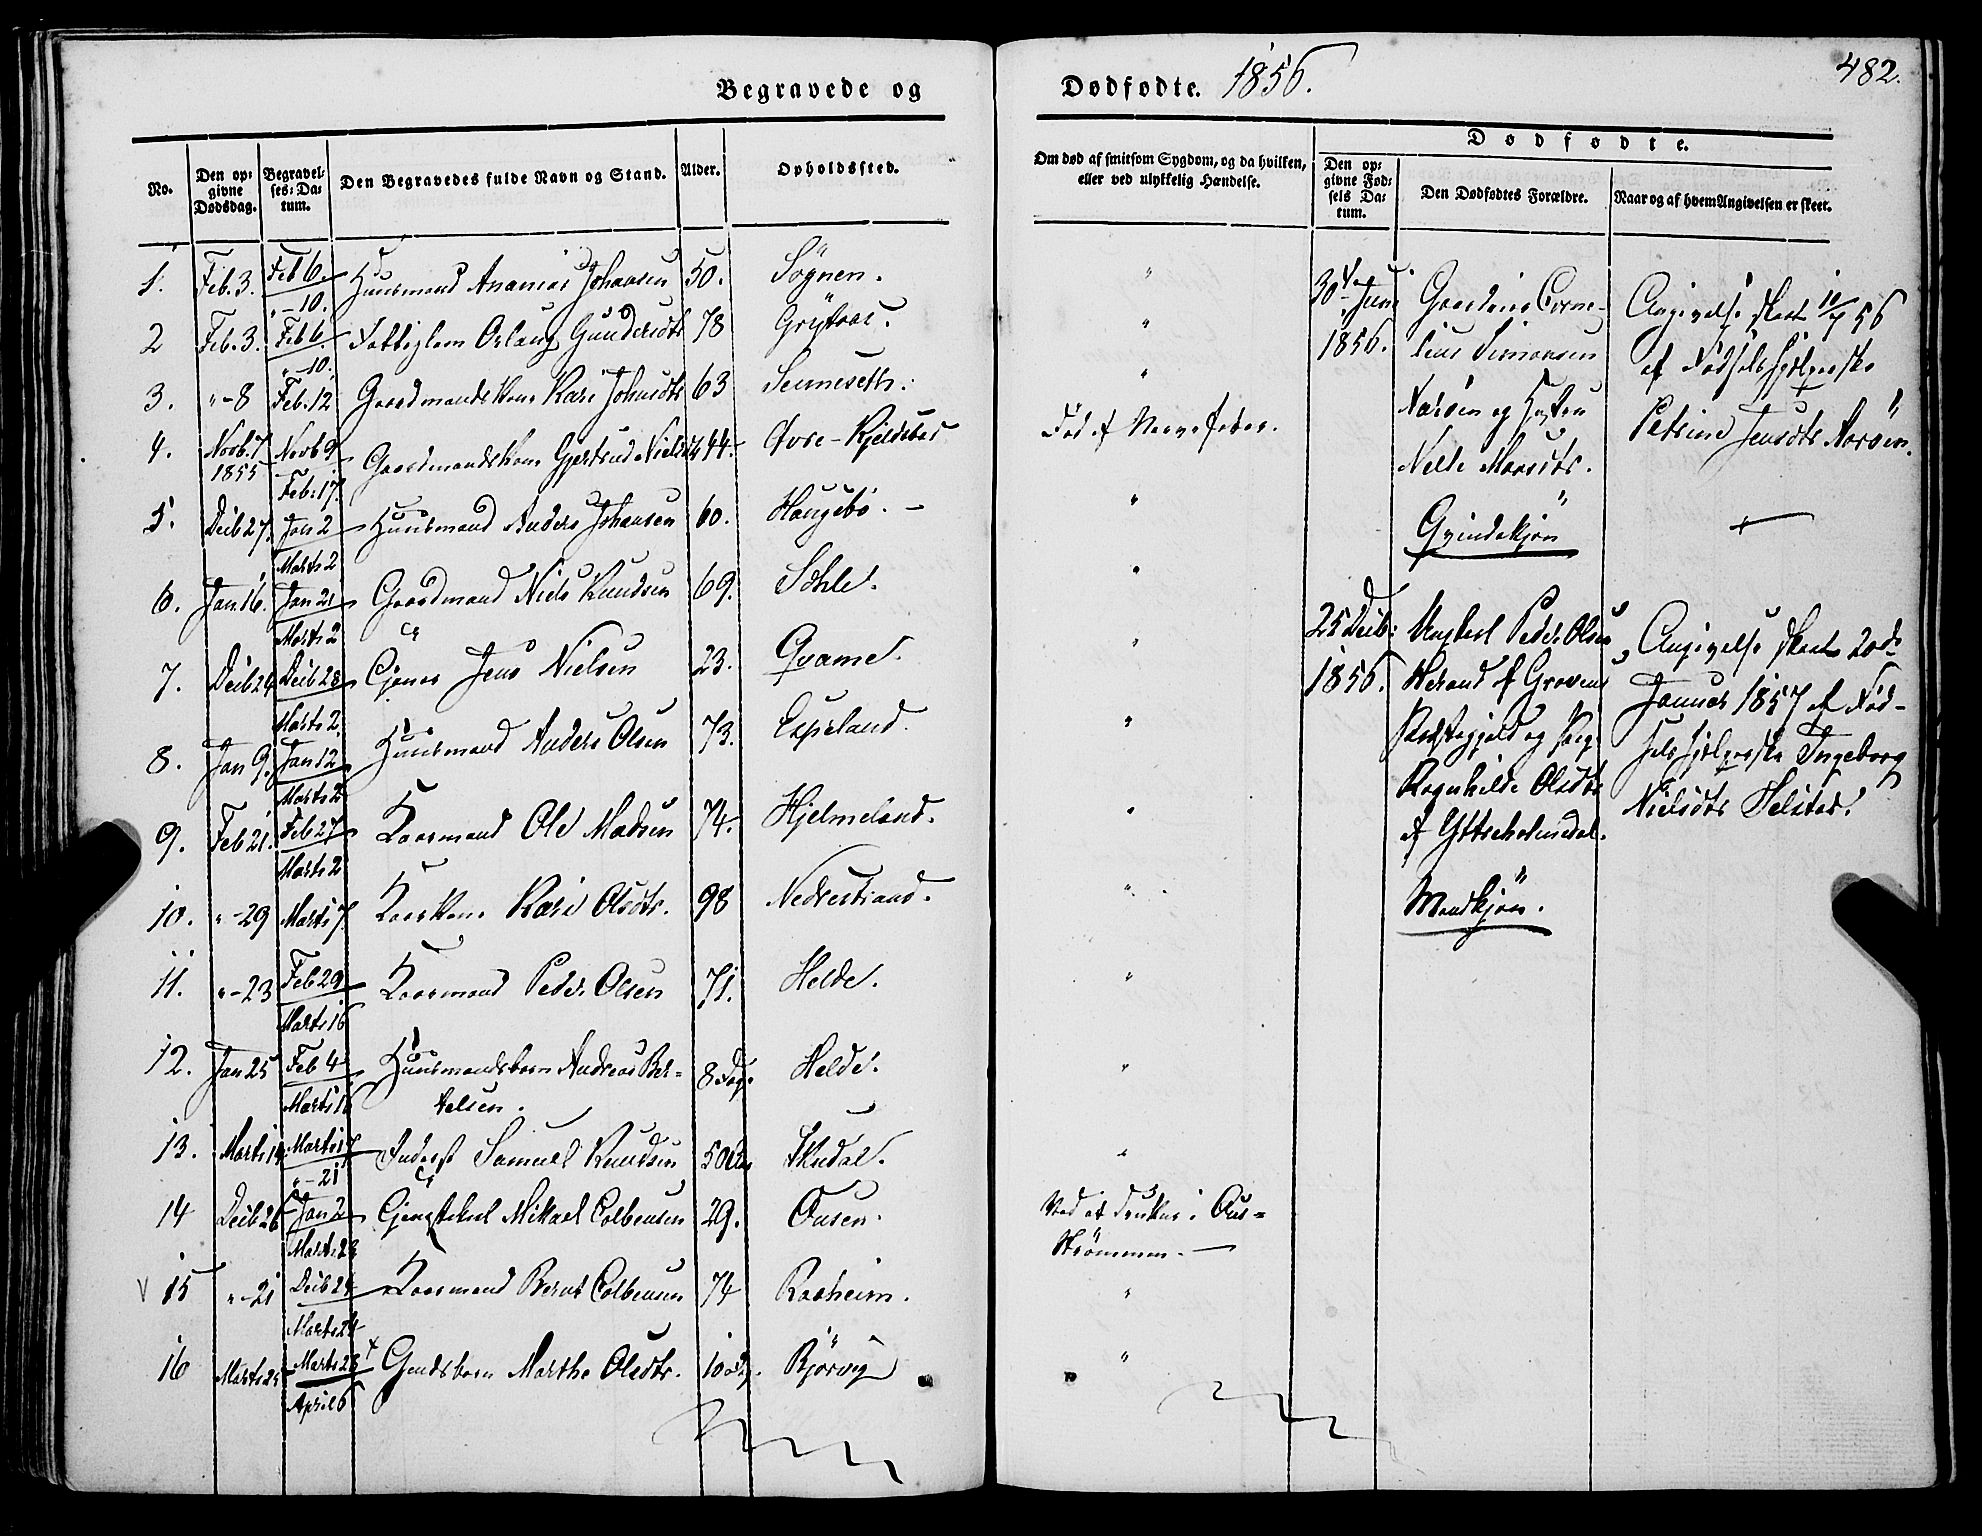 Begravede og
Dødfødte. 1856.
482.
No.
Den op=
givne
Dødsdag.
Begravel=
ses=Da=
tum.
Den Begravedes fulde Navn og Stand.
Alder.
Opholdssted.
Om død af smitsom Sygdom, og da hvilken,
eller ved ulykkelig Hændelse.
Dødfødte.
Den op=
givne Fød=
sels Da=
tum.
Den Dødfødtes Forældre.
Naar og af hvem Angivelsen er skeet.
1. Feb. 3. Feb 6. Huusmand Ananias Johansen 50. Søgnen. "
" - 10.
2 Feb. 3. Feb 6. Fattiglem Gundersdtr 78 "
" - 10.
3. " - 8 Feb. 12 Gaardmandskone Kari Johnsdtr 63 "
4. Novb. 7 Novb 9 Gaardmandskone Gjertrud Nielsd 44. Øvre - Kjeldsbod Død af Nervefeber.
1855 Feb. 17.
5. Decb 27. Jan 2 Huusmand Anders Johansen 60. Haugebø. - "
Marts 2
6. Jan 16. Jan 21 Gaardmand Niels Knudsen 69. Sohle. "
Marts 2
7. Decb 24 Decb 28 Jens Nielsen 23. Qvame. "
Marts 2.
8. Jan 9. Jan 12 Huusmand Anders Olsen 73. Espeland. "
Marts 2
9. Feb 21. Feb 27 Kaarmand Ole Madsen 74. Hjelmeland. "
Marts 2
10. " - 29 Marts 7 Kaarkone Kari Olsdtr. 98 Nedrestrand. "
11. " - 23 Feb 29 Kaarmand Peder Olsen 71. Helde. "
Marts 16
12. Jan 25 Feb 4 Huusmandsbarn Andreas Ber= 8 Dag. Helde. "
Marts 16 telsen.
13. Marts 14 Marts 17 Inderst Samuel Knudsen 50 "
" - 21
14 Decb 26 Jan 2 Mikael Colbensen 29. Ousen. Ved at drukne i Ous=
Marts 23 strømmen. -
V 15 " - 21 Decb 24 Kaarmand Bernt Colbensen 74 Raaheim. "
Marts 24
16 Marts 25 Marts 28 + Marthe Olsdtr. 10 Bjørvig "
April 6
30te Juni
1856.
Gaardmd Corne=
lius Simonsen
Aarøen og Hustru
Nelle Monsdtr.
Qvindekjøn
Angivelse skeet 10/7 56
af Fødselshjelperske
Petrine Jensdtr Aarøen.
+
25 Decb:
1856.
Ungkarl Peder Olsen
Herand af Gravens
Præstegjeld og Pige
Ragnhilde Olsdtr
af Yttreholmedal.
Mandkjøn.
Angivelse skeet 20de
Januar 1857 af Fød-
selshjelperske Ingeborg
Nielsdtr Helstad.